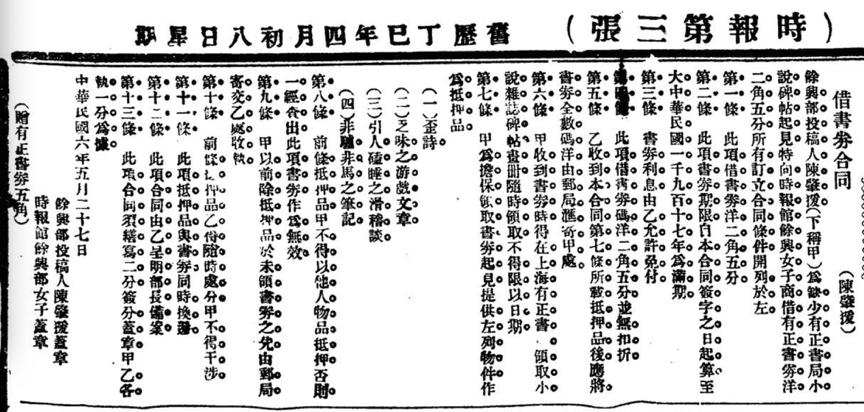 （時報第三張）
舊歷丁巳年四月初八日星期
借書券合同
（陳肇援）
餘興部投稿人陳肇援（下稱甲）爲缺少有正書局小
說碑帖起見特向時報館餘興女子商借有正書券洋
二角五分所有訂立合同條件開列於左
第一條　此項借書券洋二角五分
第二條　此項書券期限自本合同簽字之日起算至
大中華民國一千九百十七年爲滿期
第三條　書券利息由乙允許免付
第四條　此項借書券碼洋二角五分並無扣折
第五條　乙收到本合同第七條所載抵押品後應將
書券全數碼洋由郵局滙寄甲處
第六條　甲收到書券時得在上海有正書　領取小
說雜誌碑帖畫冊隨時領取不得限以日期
第七條　甲爲擔保領取書券起見提供左列物件作
爲抵押品
（一）歪詩
（二）乏味之游戲文章
（三）引人磕睡之滑稽談
（四）非驢非馬之筆記
第八條　前條抵押品甲不得以他人物品抵押否則
一經查出此項書券作爲無效
第九條　甲以前除抵押品於未領書券之先由郵局
寄交乙處收執
第十條　前條抵押品乙得隨時處分甲不得干涉
第十一條　此項抵押品與書券同時換遞
第十二條　此項合同由乙呈明部長備案
第十三條　此項合同須繕寫二分簽分蓋章甲乙各
執一分爲據
中華民國六年五月二十七日
餘興部投稿人陳肇援蓋章
時報館餘興部女子蓋章
（贈有正書券五角）